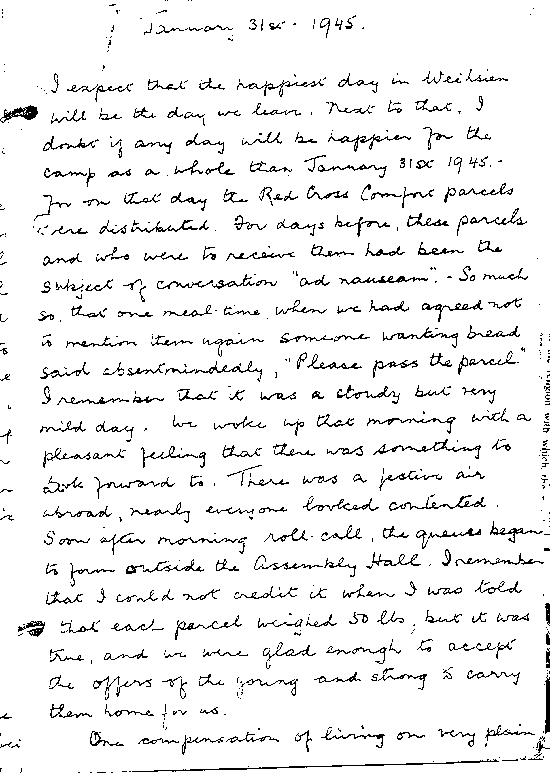 January 31st - 1945.
I expect that the happiest day in Weihsien
will be the day we leave. Next to that, I
doubt if any day will be happier for the
camp as a whole than January 31st 1945. -
For on that day the Red Cross Comfort parcels
were distributed. For days before, these parcels
and who were to receive them had been the
subject of conversation "ad nauseam". - So much
so, that one meal-time, when we had agreed not
to mention item again someone wanting bread
said absentmindedly, "Please pass the parcel"
I remember that it was a cloudy but very
mild day. We woke up that morning with a
pleasant feeling that there was something to
look forward to. There was a festive air
abroad, nearly everyone looked contented.
Soon after morning roll-call, the queues began
to form outside the Assembly Hall. I remember
that I could not credit it when I was told
that each parcel weighed 50 lbs, but it was
true, and we were glad enough to accept
the offers of the young and strong to carry
them home for us.
One compensation of living on very plain
religion with which the